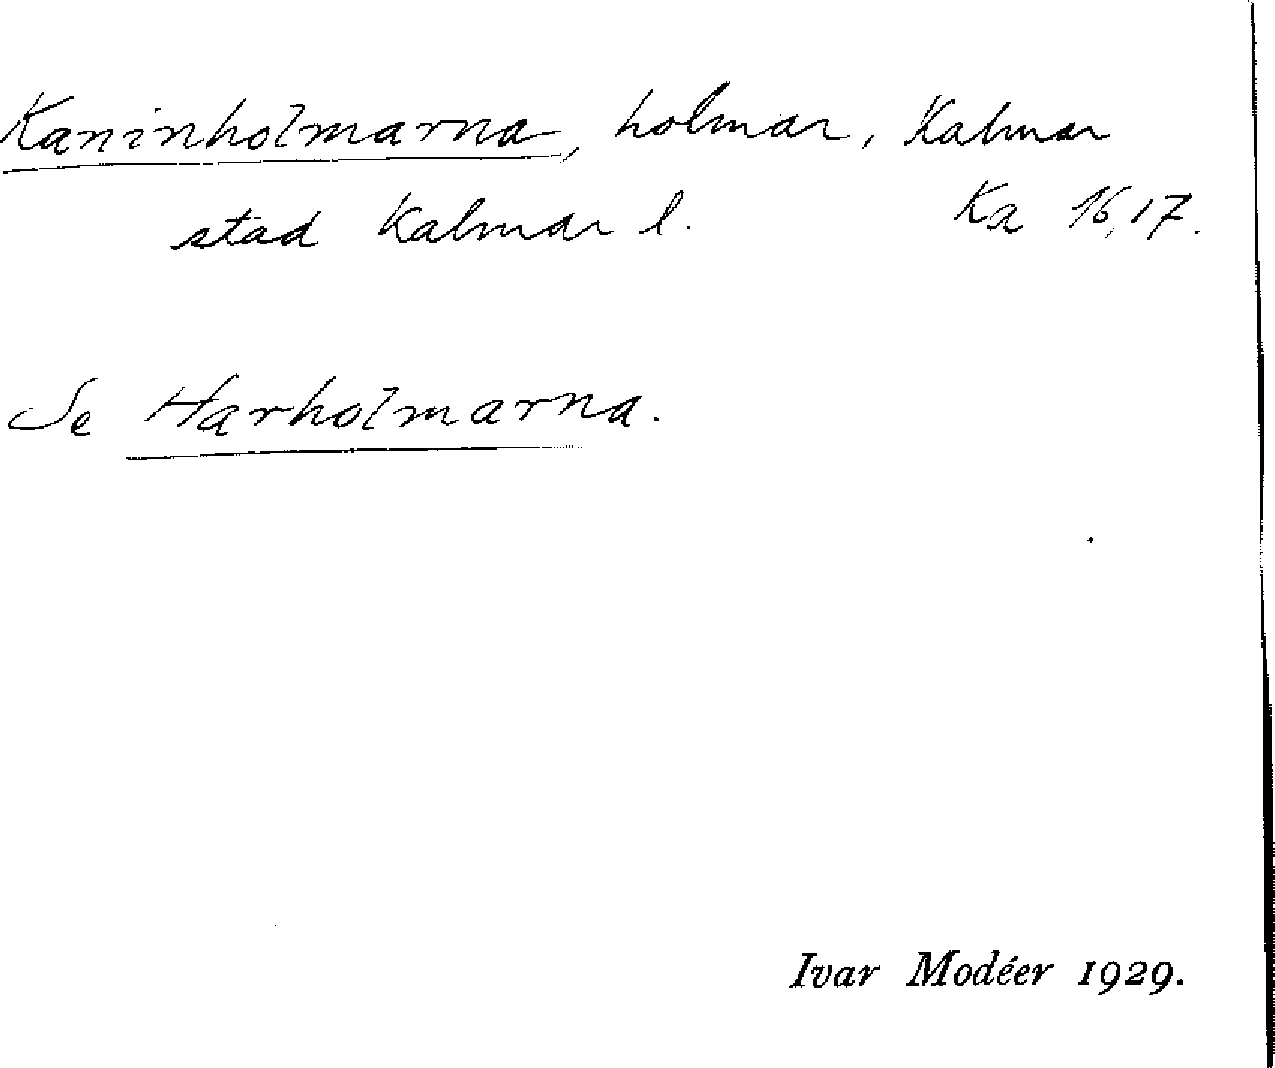 Kaninholmarna, holmar, Kalmar
stad Kalmar l. Ka 16,17.
Se Harholmarna.
Ivar Modéer 1929.